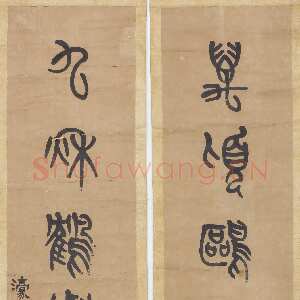 萬頃鷗
九秌鶴
濠
Shufawang.CN